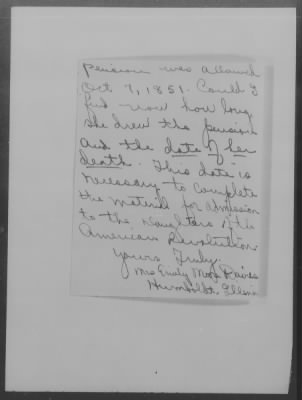 Pension was allowed
Oct 7, 1851. Could I
find now how long
she drew the pension
and the date of her
death. This date is
necessary to complete
the material for admission
to the Daughters of the
American Revolution.
Yours Truly.
Mrs Emily Raines
Humboldt, Illinois